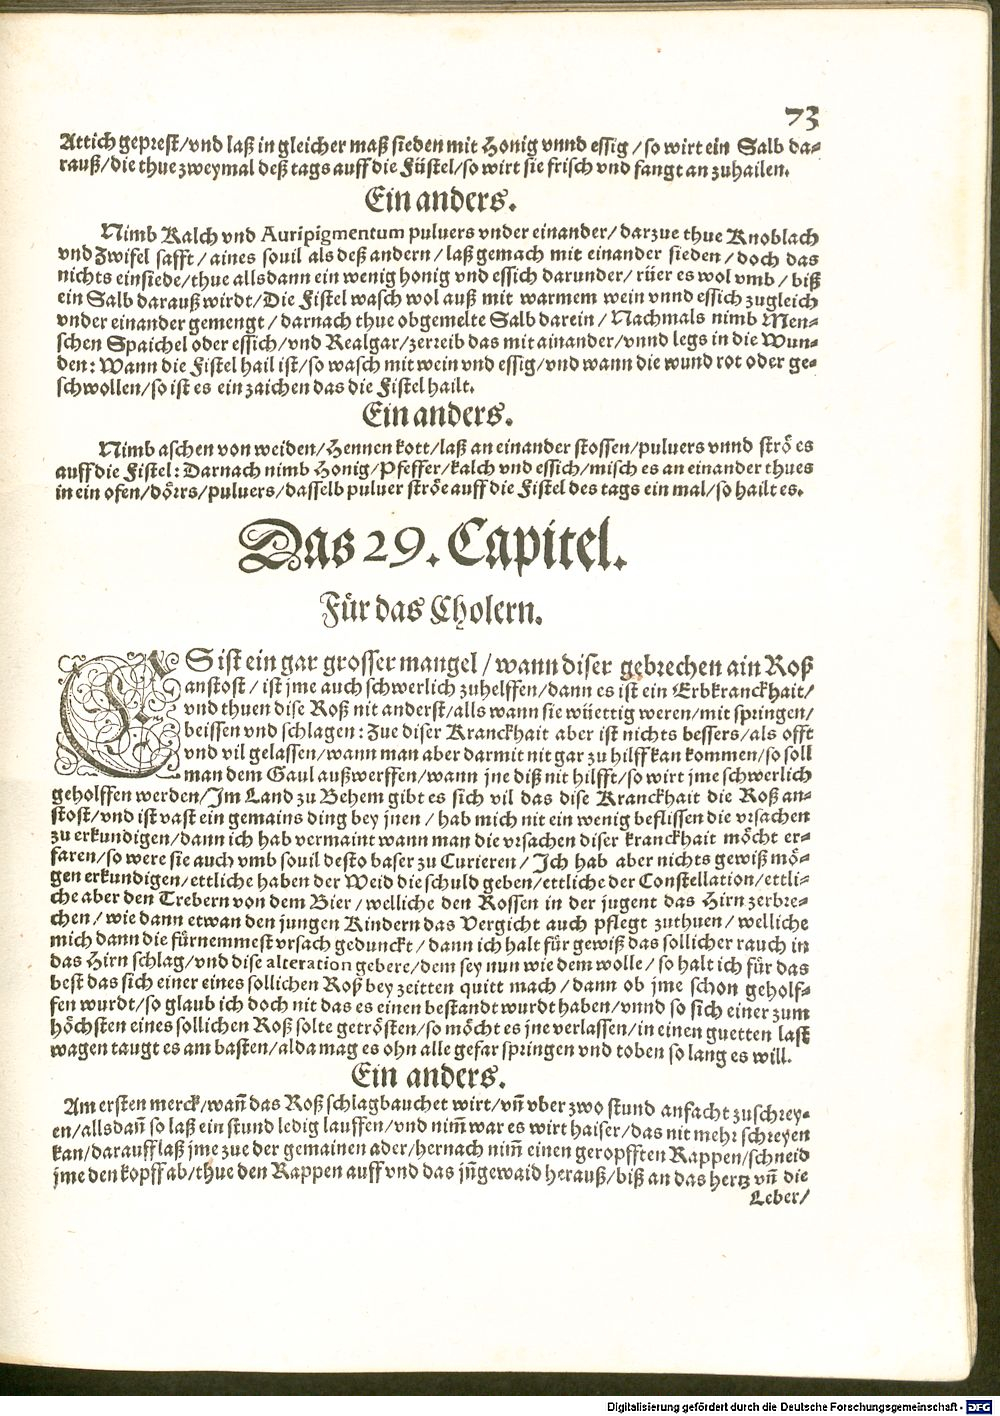 73
Attich geprest/vnd laß in gleicher maß sieden mit Honig vnnd essig/so wirt ein Salb da-
rauß/die thue zweymal deß tags auff die Füstel/so wirt sie frisch vnd fangt an zuhailen.
Ein anders.
Nimb Kalch vnd Auripigmentum puluers vnder einander/darzue thue Knoblach
vnd Zwifel safft/aines souil als deß andern/laß gemach mit einander sieden/doch das
nichts einsiede/thue allsdann ein wenig honig vnd essich darunder/rüer es wol vmb/biß
ein Salb darauß wirdt/Die Fistel wasch wol auß mit warmem wein vnnd essich zugleich
vnder einander gemengt/darnach thue obgemelte Salb darein/Nachmals nimb Men-
schen Spaichel oder essich/vnd Realgar/zerreib das mit ainander/vnnd legs in die Wun-
den: Wann die Fistel hail ist/so wasch mit wein vnd essig/vnd wann die wund rot oder ge-
schwollen/so ist es ein zaichen das die Fistel hailt.
Ein anders.
Nimb aschen von weiden/Hennen kott/laß an einander stossen/puluers vnnd strö es
auff die Fistel: Darnach nimb Honig/Pfeffer/kalch vnd essich/misch es an einander thues
in ein ofen/dörrs/puluers/dasselb puluer ströe auff die Fistel des tags ein mal/so hailt es.
Das 29. Capitel.
Für das Cholern.
ES ist ein gar grosser mangel/wann diser gebrechen ain Roß
anstost/ist jme auch schwerlich zuhelffen/dann es ist ein Erbkranckhait/
vnd thuen dise Roß nit anderst/alls wann sie wüettig weren/mit springen/
beissen vnd schlagen: Zue diser Kranckhait aber ist nichts bessers/als offt
vnd vil gelassen/wann man aber darmit nit gar zu hilff kan kommen/so soll
man dem Gaul außwerffen/wann jne diß nit hilfft/so wirt jme schwerlich
geholffen werden/Im Land zu Behem gibt es sich vil das dise Kranckhait die Roß an-
stost/vnd ist vast ein gemains ding bey jnen/hab mich nit ein wenig beflissen die vrsachen
zu erkundigen/dann ich hab vermaint wann man die vrsachen diser kranckhait möcht er-
faren/so were sie auch vmb souil desto baser zu Curieren/Ich hab aber nichts gewiß mö-
gen erkundigen/ettliche haben der Weid die schuld geben/ettliche der Constellation/ettli-
che aber den Trebern von dem Bier/welliche den Rossen in der jugent das Hirn zerbre-
chen/wie dann etwan den jungen Kindern das Vergicht auch pflegt zuthuen/welliche
mich dann die fürnemmest vrsach gedunckt/dann ich halt für gewiß das sollicher rauch in
das Hirn schlag/vnd dise alteration gebere/dem sey nun wie dem wolle/so halt ich für das
best das sich einer eines sollichen Roß bey zeitten quitt mach/dann ob jme schon geholf-
fen wurdt/so glaub ich doch nit das es einen bestandt wurdt haben/vnnd so sich einer zum
höchsten eines sollichen Roß solte getrösten/so möcht es jne verlassen/in einen guetten last
wagen taugt es am basten/alda mag es ohn alle gefar springen vnd toben so lang es will.
Ein anders.
Am ersten merck/wañ das Roß schlagbauchet wirt/vñ vber zwo stund anfacht zuschrey-
en/allsdañ so laß ein stund ledig lauffen/vnd nim̃ war es wirt haiser/das nit mehr schreyen
kan/darauff laß jme zue der gemainen ader/hernach nim̃ einen geropfften Rappen/schneid
jme den kopff ab/thue den Rappen auff vnd das jñgewaid herauß/biß an das hertz vñ die
Leber/
Digitalisierung gefördert durch die Deutsche Forschungsgemeinschaft - DFG